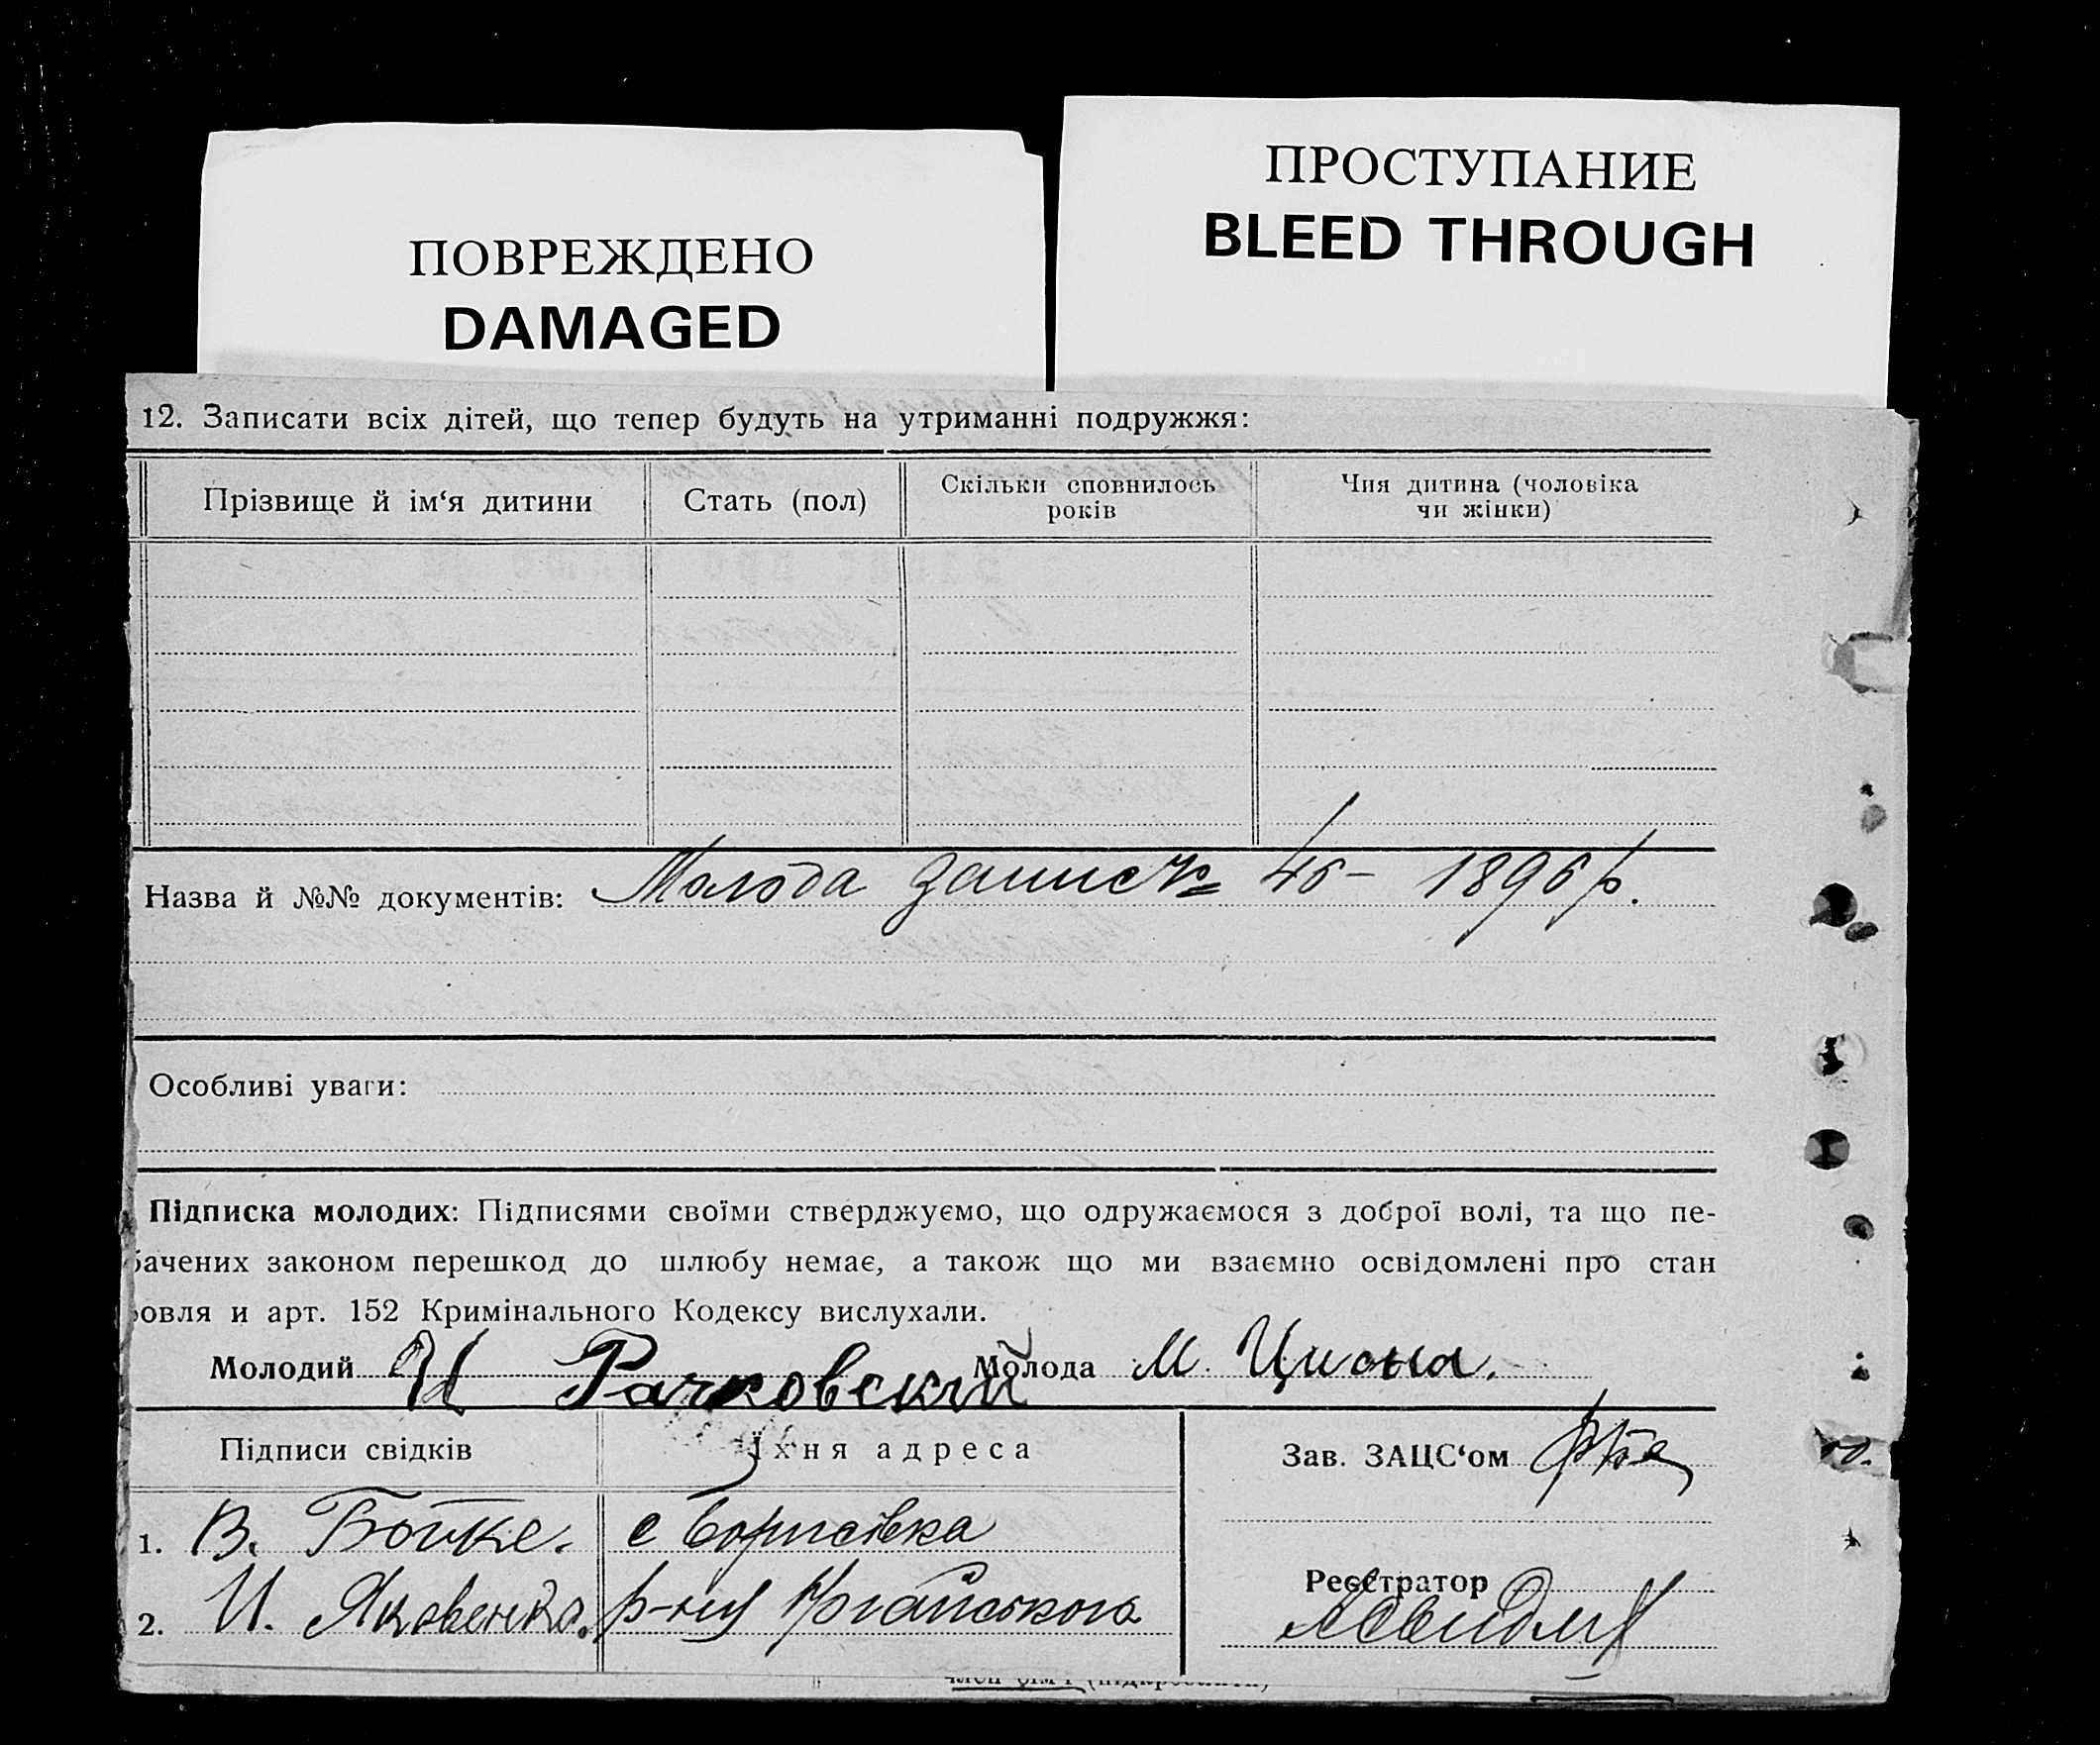 ПОВРЕЖДЕНО
DAMAGED
ПРОСТУПАНИЕ
BLEED THROUGH
12. Записати всіх дітей, що тепер будуть на утриманні подружжя:
Прізвище й ім‘я дитини
Стать (пол)
Скільки сповнилось
років
Чия дитина (чоловіка
чи жінки)
Назва й №№ документів: Молода запис № 46 – 1896 р.
Особливі уваги:
Підписка молодих: Підписями своїми стверджуємо, що одружаємося з доброї волі, та що пе-
бачених законом перешкод до шлюбу немає, а також що ми взаємно освідомлені про стан
овля и арт. 152 Кримінального Кодексу вислухали.
Молодий Рачковский Молода М. Циона.
Підписи свідків
Їхня адреса
Зав. ЗАЦС‘ом
1. В. Бойке. с Борисівка
2. И. Яковенко. р-ну Ногайського
Реєстратор
член сім‘ї (підкреслити)